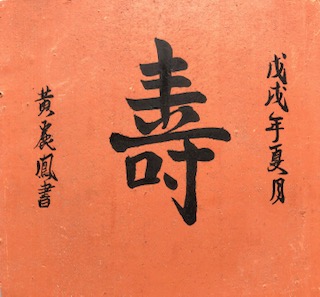 戊戌年夏月
壽
黃麗鳳書